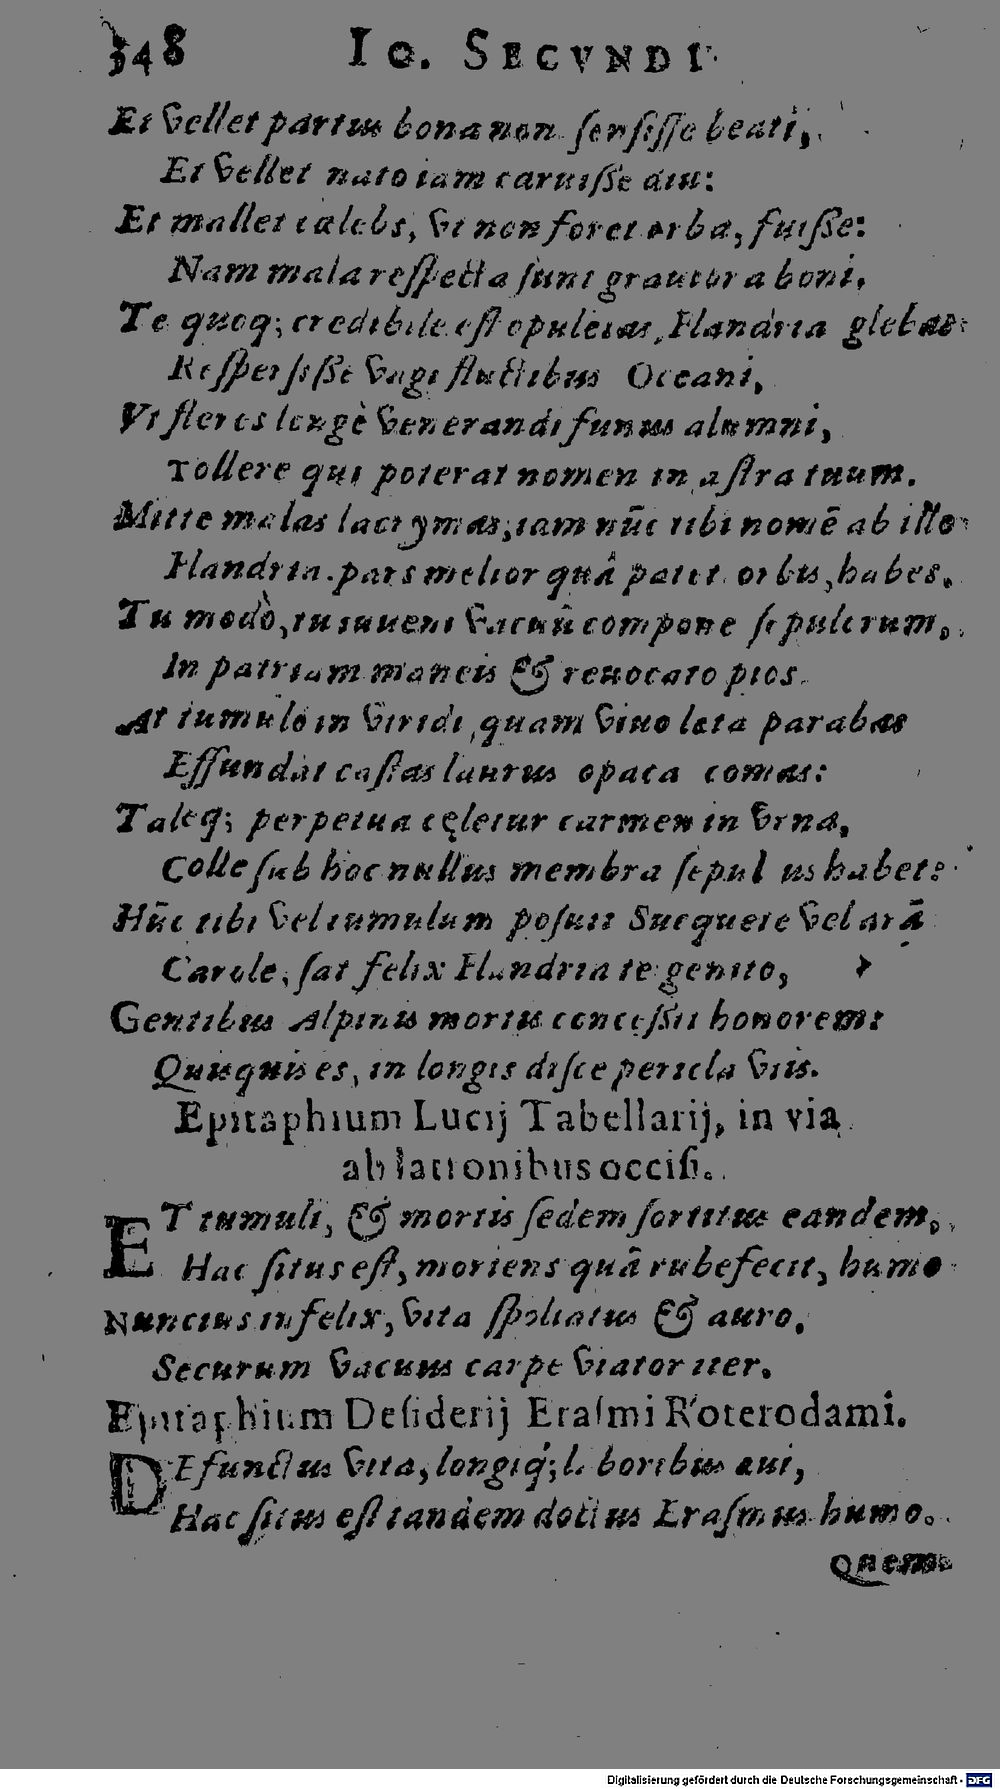 348 IO. SECVNDI
Et vellet partus bona non sensisse beati,
Et vellet nato iam caruisse diu:
Et mallet cælebs, vt non foret orba, fuisse:
Nam mala respecta sunt grauiora boni.
Te quoq; credibile est opulētas, Flandria glebas
Respersisse vagi fluctibus Oceani,
Vt fleres longè venerandi funus alumni,
Tollere qui poterat nomen in astra tuum.
Mitte malas lacrymas, iam nūc tibi nomē ab illo
Flandria. pars melior quâ patet orbis, habes.
Tu modò, tu iuueni vacuū compone sepulcrum,
In patriam maneis & reuocato pios.
At tumulo in viridi, quam viuo læta parabas
Effundat castas laurus opaca comas:
Taleq; perpetua cęletur carmen in vrna,
Colle sub hoc nullus membra sepul us habet:
Hūc tibi vel tumulum posuit Sucquete vel arā
Carole, sat felix Flandria te genito,
Gentibus Alpinis mortis concessit honorem:
Quisquis es, in longis disce pericla viis.
Epitaphium Lucij Tabellarij, in via
ab latronibus occisi.
ET tumuli, & mortis sedem sortitus eandem,
Hac situs est, moriens quâ rubefecit, humo
Nuncius infelix, vita spoliatus & auro,
Securum vacuus carpe viator iter.
Epitaphium Desiderij Erasmi Roterodami.
DEfunctus vita, longiq; l boribus æui,
Hac situs est tandem doctus Erasmus humo.
Quem
Digitalisierung gefördert durch die Deutsche Forschungsgemeinschaft - DFG